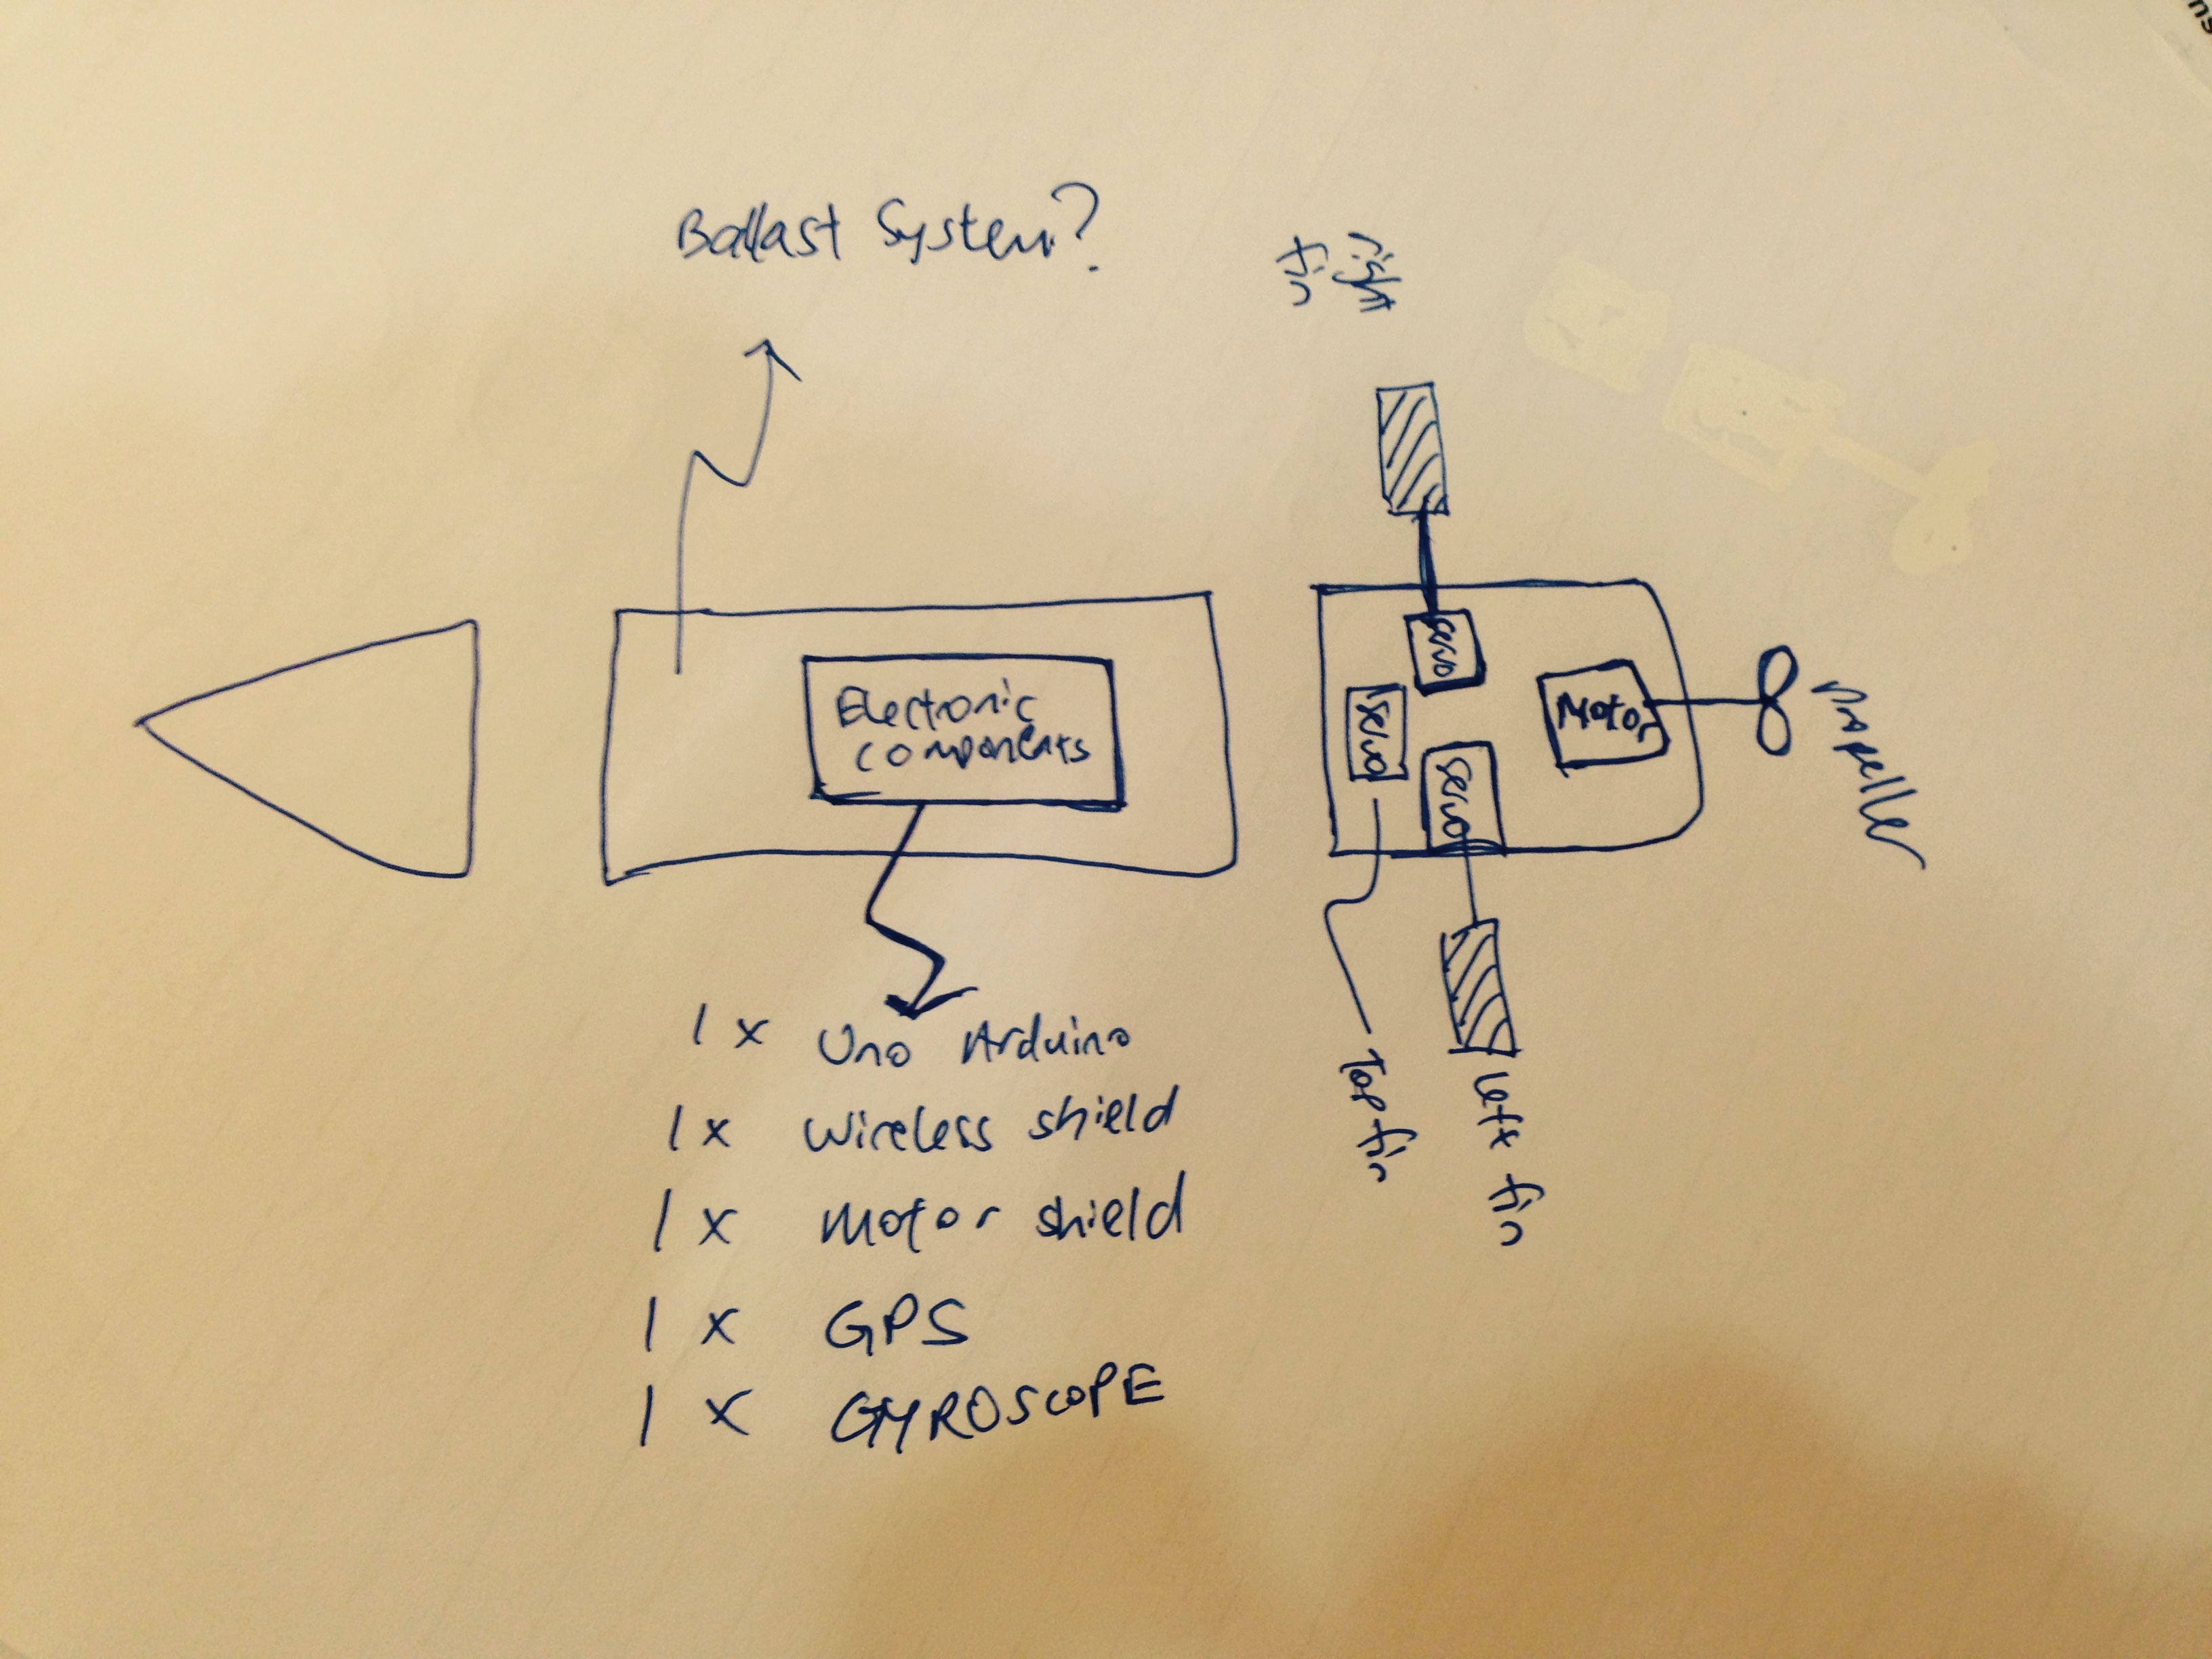 Ballast System?
fin
right
Electronic
components
servo
servo
servo
Motor
Propeller
Top fin
Left fin
1 x Uno Arduino
1 x Wireless shield
1 x Motor shield
1 x GPS
1 x GYROSCOPE